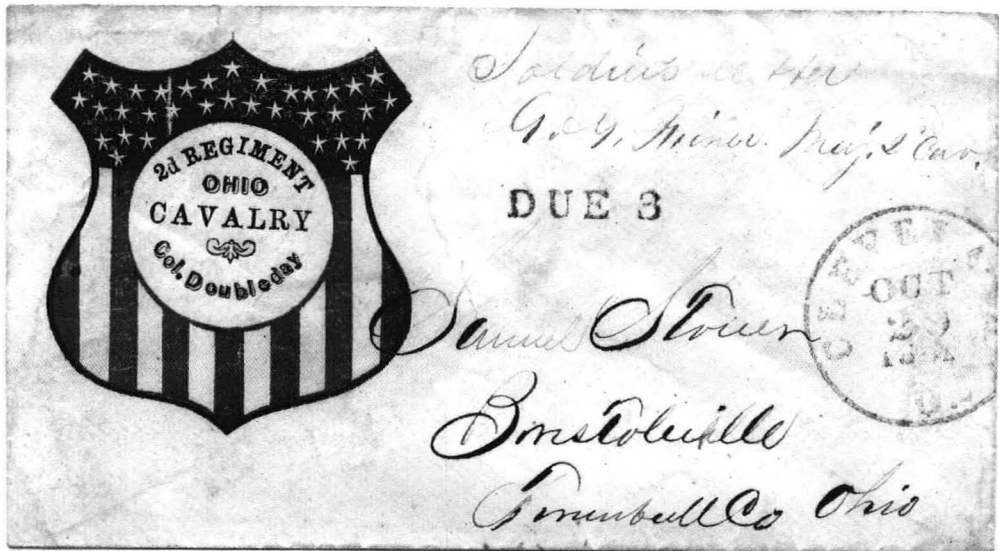 2d REGIMENT
OHIO
CAVALRY
Col. Doubleday
Soldier's letter
G. G. Minor. Maj. 2d Cav.
DUE 3
CLEVELAND
OCT
O.
Samuel
Bristolville
Trumbull Co Ohio